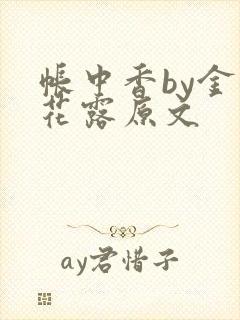 帐中香by金
花露原文
ay君惜子